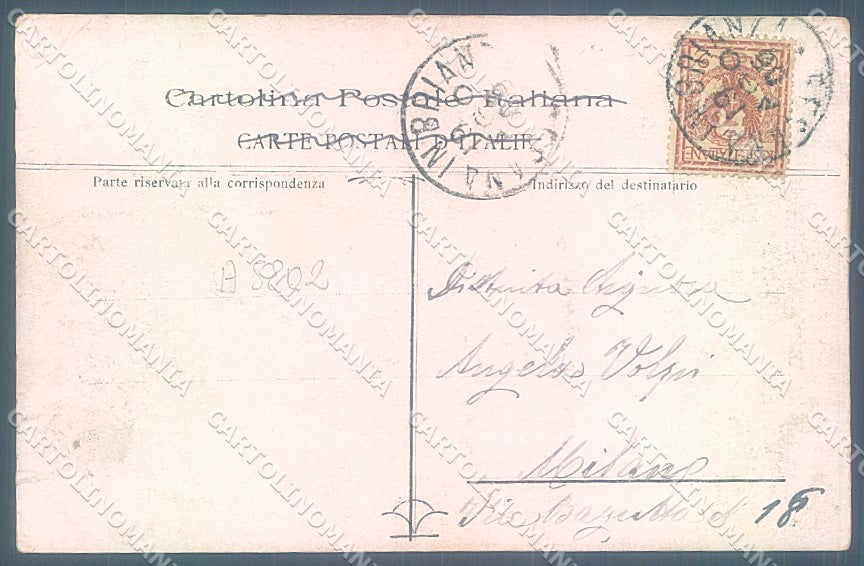 Cartolina Postale Italiana
CARTE POSTALE D'ITALIE
Parte riservata alla corrispondenza
Indirizzo del destinatario
IN BRIANZA
IN BRIANZA
A 5802
Distinta Signora
Angela Volpi
Milano
Via Bagutta N 18
CARTOLINOMANIA